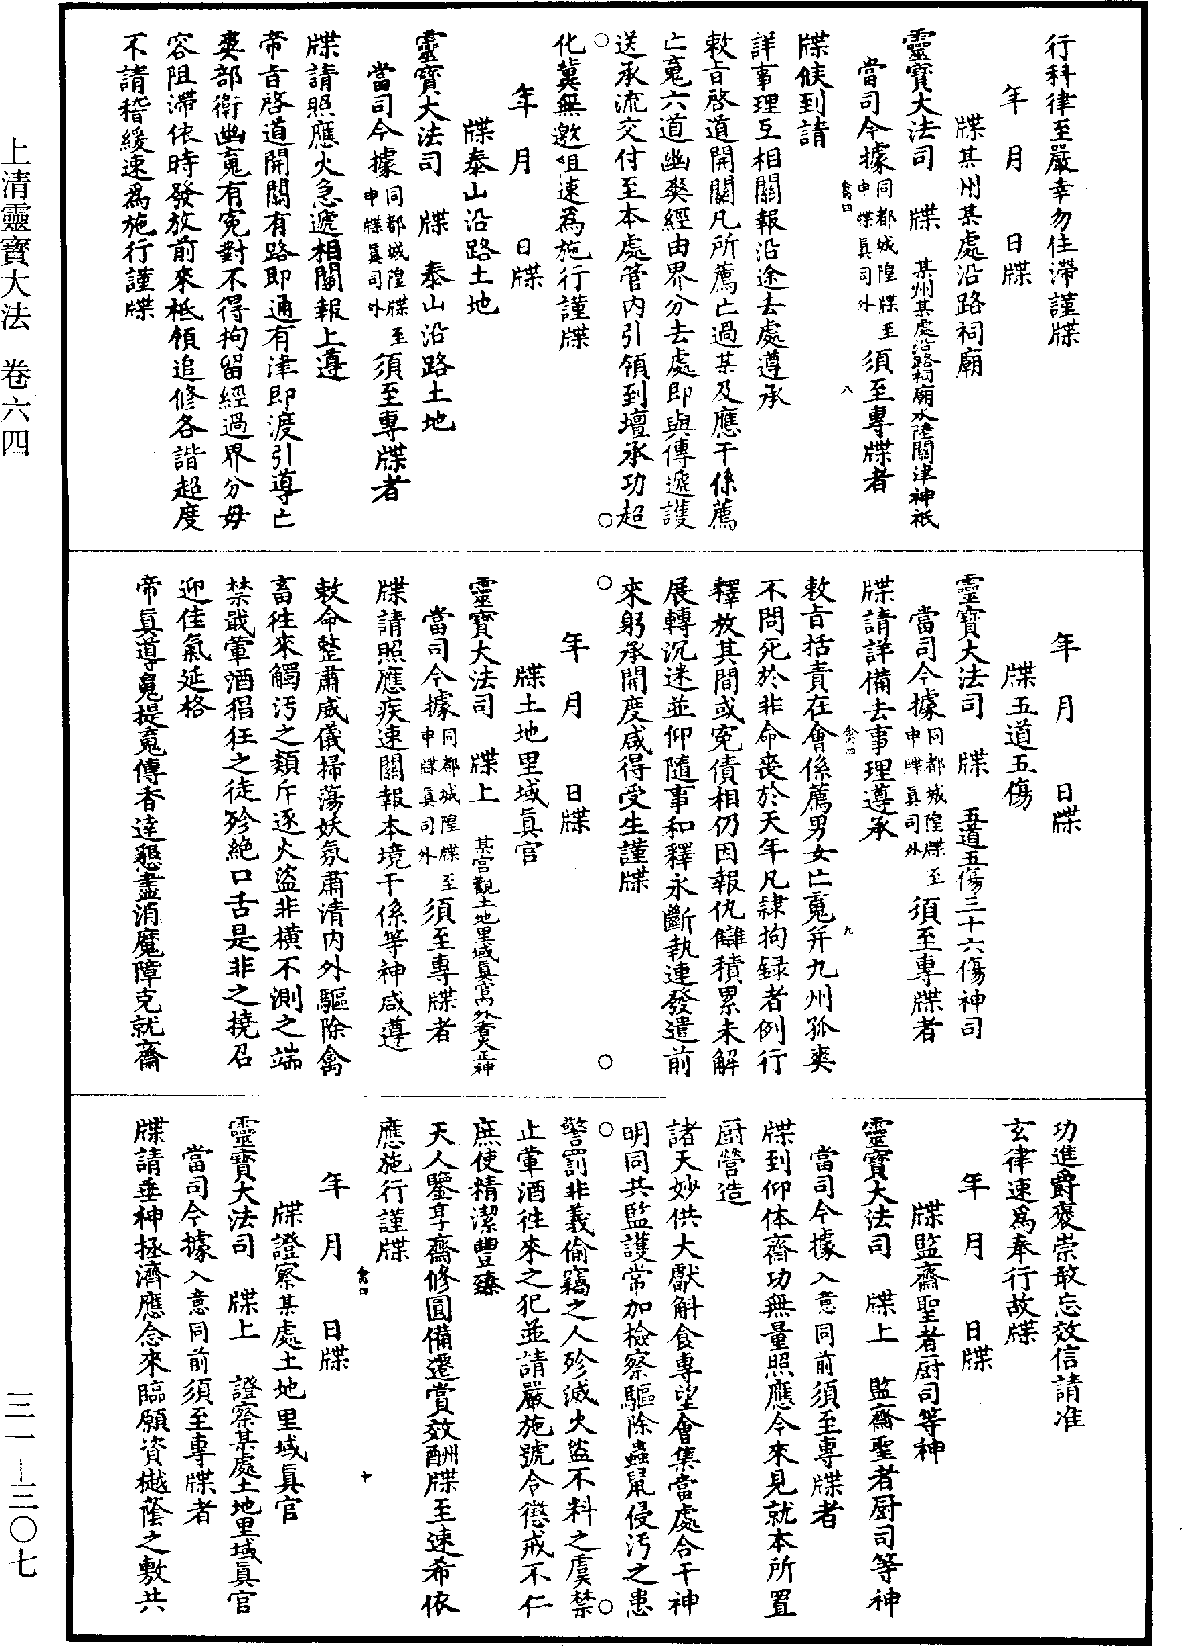 上清靈寶大法　卷六四
三一－三〇七
行科律至嚴幸勿住滯謹牒
年　月　日牒
牒某州某處沿路祠廟
靈寶大法司　牒　某州某處沿路祠廟水陸關津神祇
當司今據同都城隍牒至申牒眞司外須至專牒者
禽四　八
牒候到請
詳事理互相關報沿途去處遵承
敕旨啓道開關凡所薦亡過某及應干係薦
亡䰟六道幽爽經由界分去處即與傳遞護
送承流交付至本處管內引領到壇承功超
化冀無邀咀速爲施行謹牒
年　月　日牒
牒泰山沿路土地
靈寶大法司　牒　泰山沿路土地
當司今據同都城隍牒至申牒眞司外須至專牒者
牒請照應火急遞相關報上遵
帝旨啓道開關有路即通有津即渡引導亡
爽部衛幽䰟有冤對不得拘留經過界分毋
容阻滯依時發放前來祗領追修各諧超度
不請稽緩速爲施行謹牒
年　月　日牒
牒五道五傷
靈寶大法司　牒　五道五傷三十六傷神司
當司今據同都城隍牒至申牒眞司外須至專牒者
牒請詳備去事理遵承
敕旨括責在會係薦男女亡䰟并九州孤爽
禽四　九
不問死於非命喪於天年凡隷拘録者例行
釋放其間或冤債相仍因報仇讎積累未解
展轉沉迷並仰隨事和釋永斷執連發遣前
來躬承開度咸得受生謹牒
年　月　日牒
牒土地里域眞官
靈寶大法司　牒上　某宮觀土地里域眞官內外香火正神
當司今據同都城隍牒至申牒眞司外須至專牒者
牒請照應疾速關報本境干係等神咸遵
敕命整肅威儀掃蕩妖氛肅清內外驅除禽
畜往來觸汚之類斥逐火盜非橫不測之端
禁戢葷酒猖狂之徒殄絶口舌是非之撓召
迎佳氣延格
帝眞導䰟提䰟傳香達懇盡消魔障克就齋
功進爵襃崇敢忘效信請准
玄律速爲奉行故牒
年　月　日牒
牒監齋聖者厨司等神
靈寶大法司　牒上　監齋聖者厨司等神
當司今據入意同前須至專牒者
牒到仰体齋功無量照應今來見就本所置
厨營造
諸天妙供大獻斛食專望會集當處合干神
明同共監護常加檢察驅除蟲鼠侵汚之患
警罰非義偷竊之人殄滅火盜不料之虞禁
止葷酒往來之犯並請嚴施號令懲戒不仁
庶使精潔豐臻
天人鑒享齋修圓備遷賞效酬牒至速希依
應施行謹牒
禽四　十
年　月　日牒
牒證察某處土地里域眞官
靈寶大法司　牒上　證察某處土地里域眞官
當司今據入意同前須至專牒者
牒請垂神拯濟應念來臨願資樾蔭之敷共